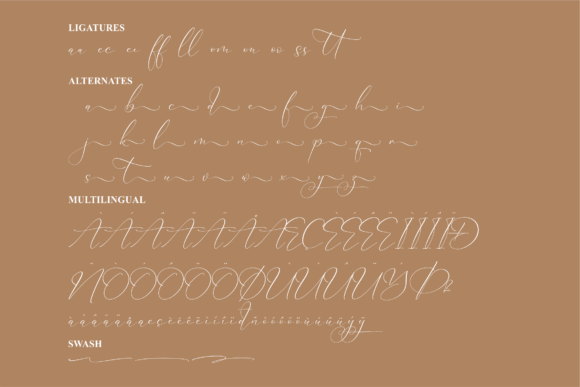 LIGATURES
aa ee ff ll om on oo ss tt
ALTERNATES
a b c d e f g h i
j k l m n o p q r
s t u v w x y z
MULTILINGUAL
ÀÁÂÃÄÅÆÇÈÉÊËÌÍÎÏÐ
ÑÒÓÔÕÖØÙÚÛÜÝÞ
àáâãäåæçèéêëìíîïðñòóôõöùúûüýÿ
SWASH